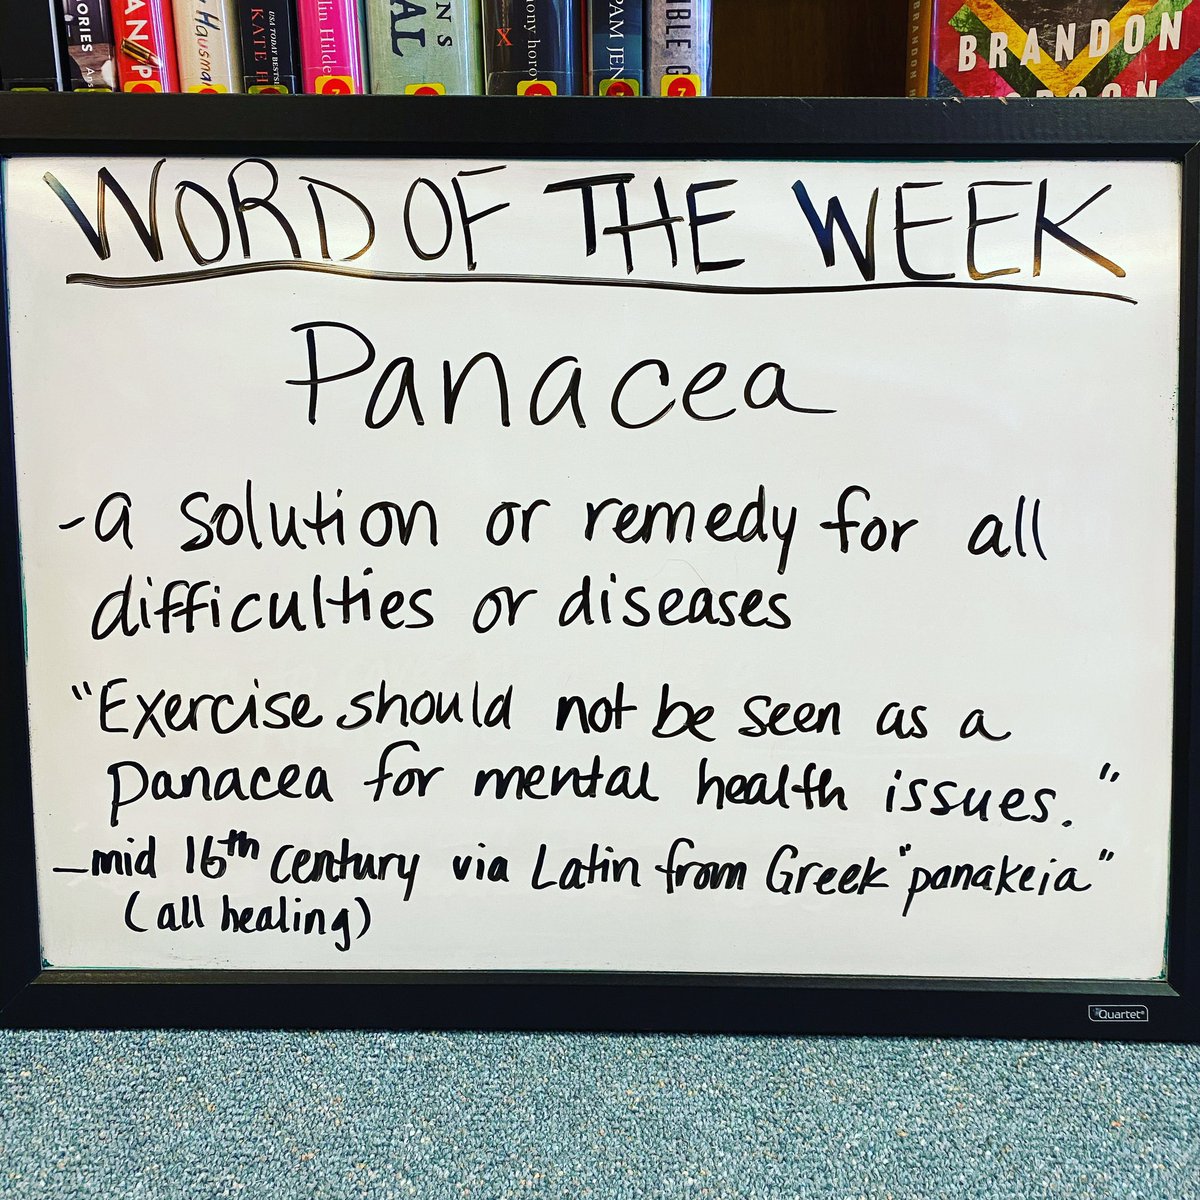 ORIES
AN
Hausma
USA TODAY BESTS
KATE H
lin Hilde
NS
AL
tony horo
X
PAM JEN
IBLE G
7
7
BRANDON H
BRANDON
WORD OF THE WEEK
Panacea
-a solution or remedy for all
difficulties or diseases
"Exercise should not be seen as a
panacea for mental health issues."
-mid 16th century via Latin from Greek "panakeia"
(all healing)
Quartet®